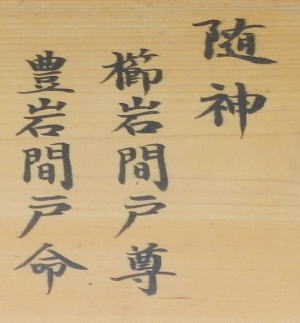 随神
櫛岩間戸尊
豊岩間戸命